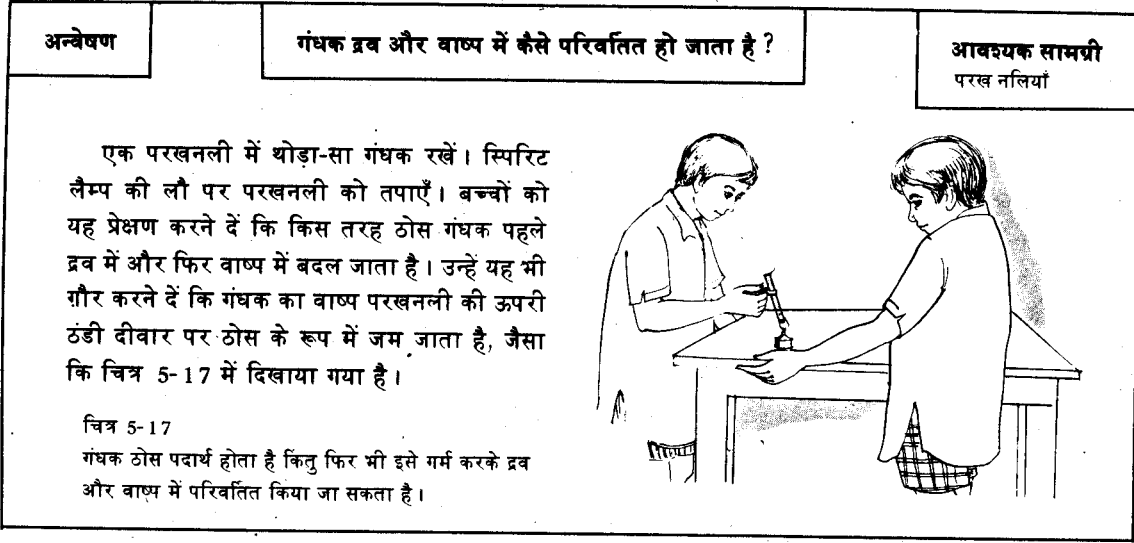 अन्वेषण
गंधक द्रव और वाष्प में कैसे परिवर्तित हो जाता है ?
आवश्यक सामग्री
परख नलियाँ
एक परखनली में थोड़ा-सा गंधक रखें। स्पिरिट
लैम्प की लौ पर परखनली को तपाएँ। बच्चों को
यह प्रेक्षण करने दें कि किस तरह ठोस गंधक पहले
द्रव में और फिर वाष्प में बदल जाता है। उन्हें यह भी
ग़ौर करने दें कि गंधक का वाष्प परखनली की ऊपरी
ठंडी दीवार पर ठोस के रूप में जम जाता है, जैसा
कि चित्र 5-17 में दिखाया गया है।
चित्र 5-17
गंधक ठोस पदार्थ होता है किंतु फिर भी इसे गर्म करके द्रव
और वाष्प में परिवर्तित किया जा सकता है।